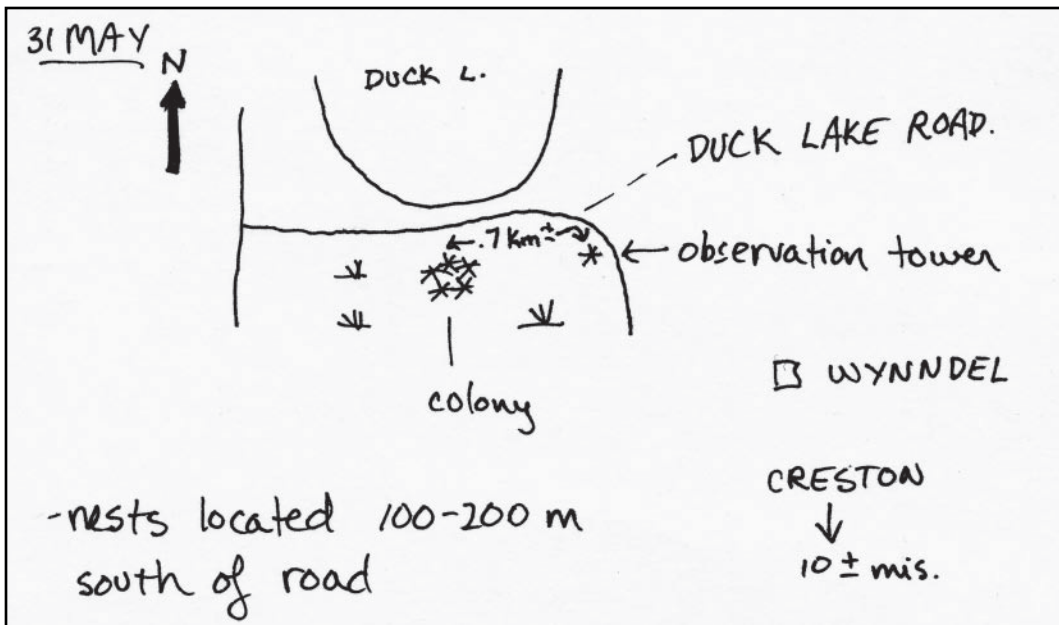 31 MAY
N
DUCK L.
DUCK LAKE ROAD.
.7 km ±
observation tower
colony
WYNNDEL
CRESTON
10 ± mis.
-nests located 100-200 m
south of road